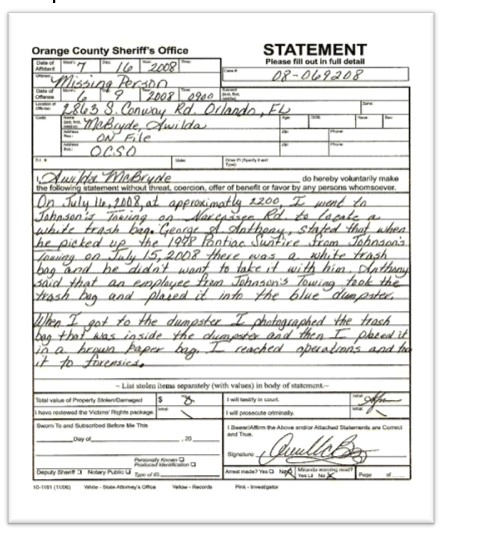 Orange County Sheriff's Office
STATEMENT
Please fill out in full detail
Date of Affidavit 7 16 2008
Case # 08-069208
Missing Person
Date of Offense 6 9 2008 0900
Location of Offense 2863 S. Conway Rd. Orlando, FL
McBryde, Awilda
ON File
OCSO
I, Awilda McBryde do hereby voluntarily make
the following statement without threat, coercion, offer of benefit or favor by any persons whomsoever.
On July 16, 2008, at approximatly 2200, I went to
Johnson's Towing on Narcoossee Rd. to locate a
white trash bag. George A Anthony, stated that when
he picked up the 1998 Pontiac Sunfire from Johnson's
Towing on July 15, 2008 there was a white trash
bag and he didn't want to take it with him. Anthony
said that an employee from Johnson's Towing took the
trash bag and placed it into the blue dumpster.
When I got to the dumpster I photographed the trash
bag that was inside the dumpster and then I placed it
in a brown paper bag. I reached operations and
it to forensics.
– List stolen items separately (with values) in body of statement.–
Total value of Property Stolen/Damaged $
I will testify in court.
I have reviewed the Victims' Rights package.
I will prosecute criminally.
Sworn To and Subscribed Before Me This
I Swear/Affirm the Above and/or Attached Statements are Correct
and True.
Day of , 20
Signature
Personally Known
Produced Identification
Deputy Sheriff Notary Public Type of ID
Arrest made? Yes No Miranda warning read? Yes No Page of
10-1181 (11/06) White - State Attorney's Office Yellow - Records Pink - Investigator